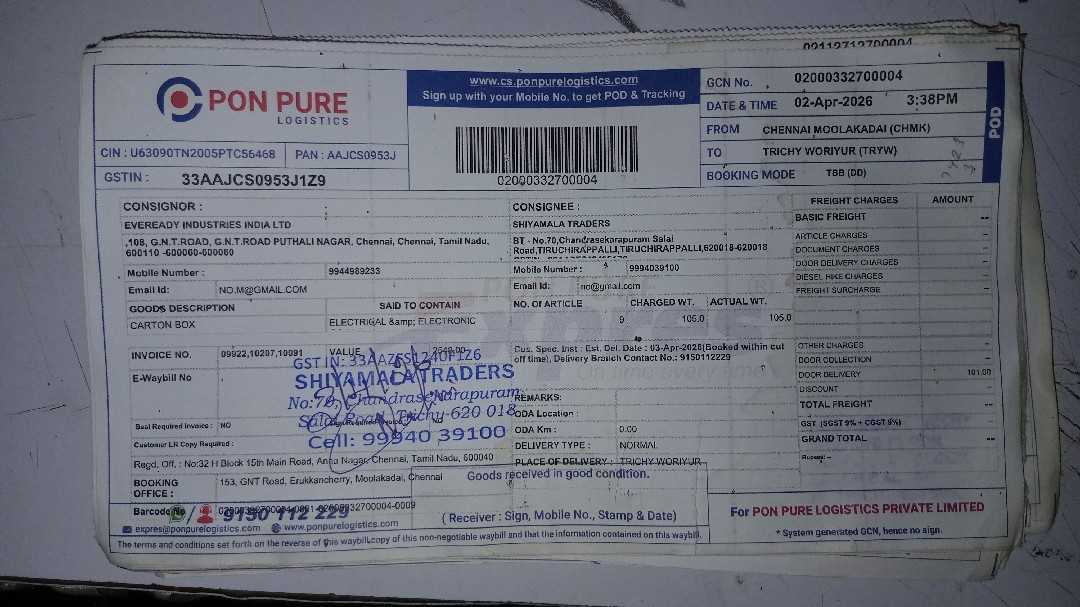 02112712700004
PON PURE
LOGISTICS
www.cs.ponpurelogistics.com
Sign up with your Mobile No. to get POD & Tracking
02000332700004
GCN No. 02000332700004
DATE & TIME 02-Apr-2026 3:38PM
FROM CHENNAI MOOLAKADAI (CHMK)
TO TRICHY WORIYUR (TRYW)
BOOKING MODE TBB (DD)
POD
CIN : U63090TN2005PTC56468 PAN : AAJCS0953J
GSTIN : 33AAJCS0953J1Z9
CONSIGNOR :
EVEREADY INDUSTRIES INDIA LTD
,108, G.N.T.ROAD, G.N.T.ROAD PUTHALI NAGAR, Chennai, Chennai, Tamil Nadu,
600110 -600060-600060
Mobile Number : 9944989233
Email Id: NO.M@GMAIL.COM
GOODS DESCRIPTION SAID TO CONTAIN
CARTON BOX ELECTRICAL &amp; ELECTRONIC
INVOICE NO. 09922,10207,10091 VALUE
E-Waybill No
Seal Required Invoice : NO NO
Customer LR Copy Required :
Regd, Off. : No:32 H Block 15th Main Road, Anna Nagar, Chennai, Tamil Nadu, 600040
BOOKING OFFICE : 153, GNT Road, Erukkancherry, Moolakadai, Chennai
Barcode No
9150 112 229
expres@ponpurelogistics.com www.ponpurelogistics.com
The terms and conditions set forth on the reverse of this waybill.copy of this non-negotiable waybill and that the information contained on this waybill.
GSTIN: 33AAZFS1240F1Z6
SHIYAMALA TRADERS
No:70, Chandrasekarapuram
Salai Road, Trichy-620 018
Cell: 99940 39100
CONSIGNEE :
SHIYAMALA TRADERS
BT - No.70,Chandrasekarapuram Salai
Road,TIRUCHIRAPPALLI,TIRUCHIRAPPALLI,620018-620018
Mobile Number : 9994039100
Email Id: no@gmail.com
NO. Of ARTICLE CHARGED WT. ACTUAL WT.
9 105.0 105.0
Cus. Spec. Inst : Est. Del. Date : 03-Apr-2026(Booked within cut
off time), Delivery Branch Contact No.: 9150112229
REMARKS:
ODA Location :
ODA Km : 0.00
DELIVERY TYPE : NORMAL
PLACE OF DELIVERY : TRICHY WORIYUR
Goods received in good condition.
( Receiver : Sign, Mobile No., Stamp & Date)
FREIGHT CHARGES AMOUNT
BASIC FREIGHT --
ARTICLE CHARGES --
DOCUMENT CHARGES --
DOOR DELIVERY CHARGES --
DIESEL HIKE CHARGES --
FREIGHT SURCHARGE --
OTHER CHARGES --
DOOR COLLECTION --
DOOR DELIVERY 101.00
DISCOUNT --
TOTAL FREIGHT --
GST (SGST 9% + CGST 9%) --
GRAND TOTAL --
Rupees: --
For PON PURE LOGISTICS PRIVATE LIMITED
* System generated GCN, hence no sign.